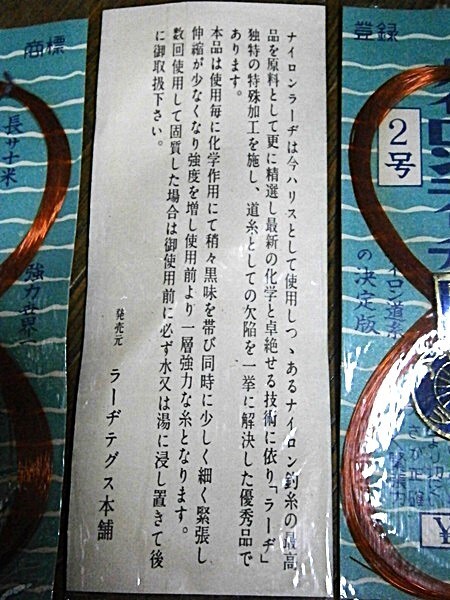 ナイロンラーヂは今ハリスとして使用しつゝあるナイロン釣糸の最高
品を原料として更に精選し最新の化学と卓絶せる技術に依り「ラーヂ」
独特の特殊加工を施し、道糸としての欠陥を一挙に解決した優秀品で
あります。
本品は使用毎に化学作用にて稍々黒味を帯び同時に少しく細く緊張し
伸縮が少なくなり強度を増し使用前より一層強力な糸となります。
数回使用して固質した場合は御使用前に必ず水又は湯に浸し置きて後
に御取扱下さい。
発売元 ラーヂテグス本舗
登録
2号
道糸
の決定版
商標
長サ十米
強力世界一